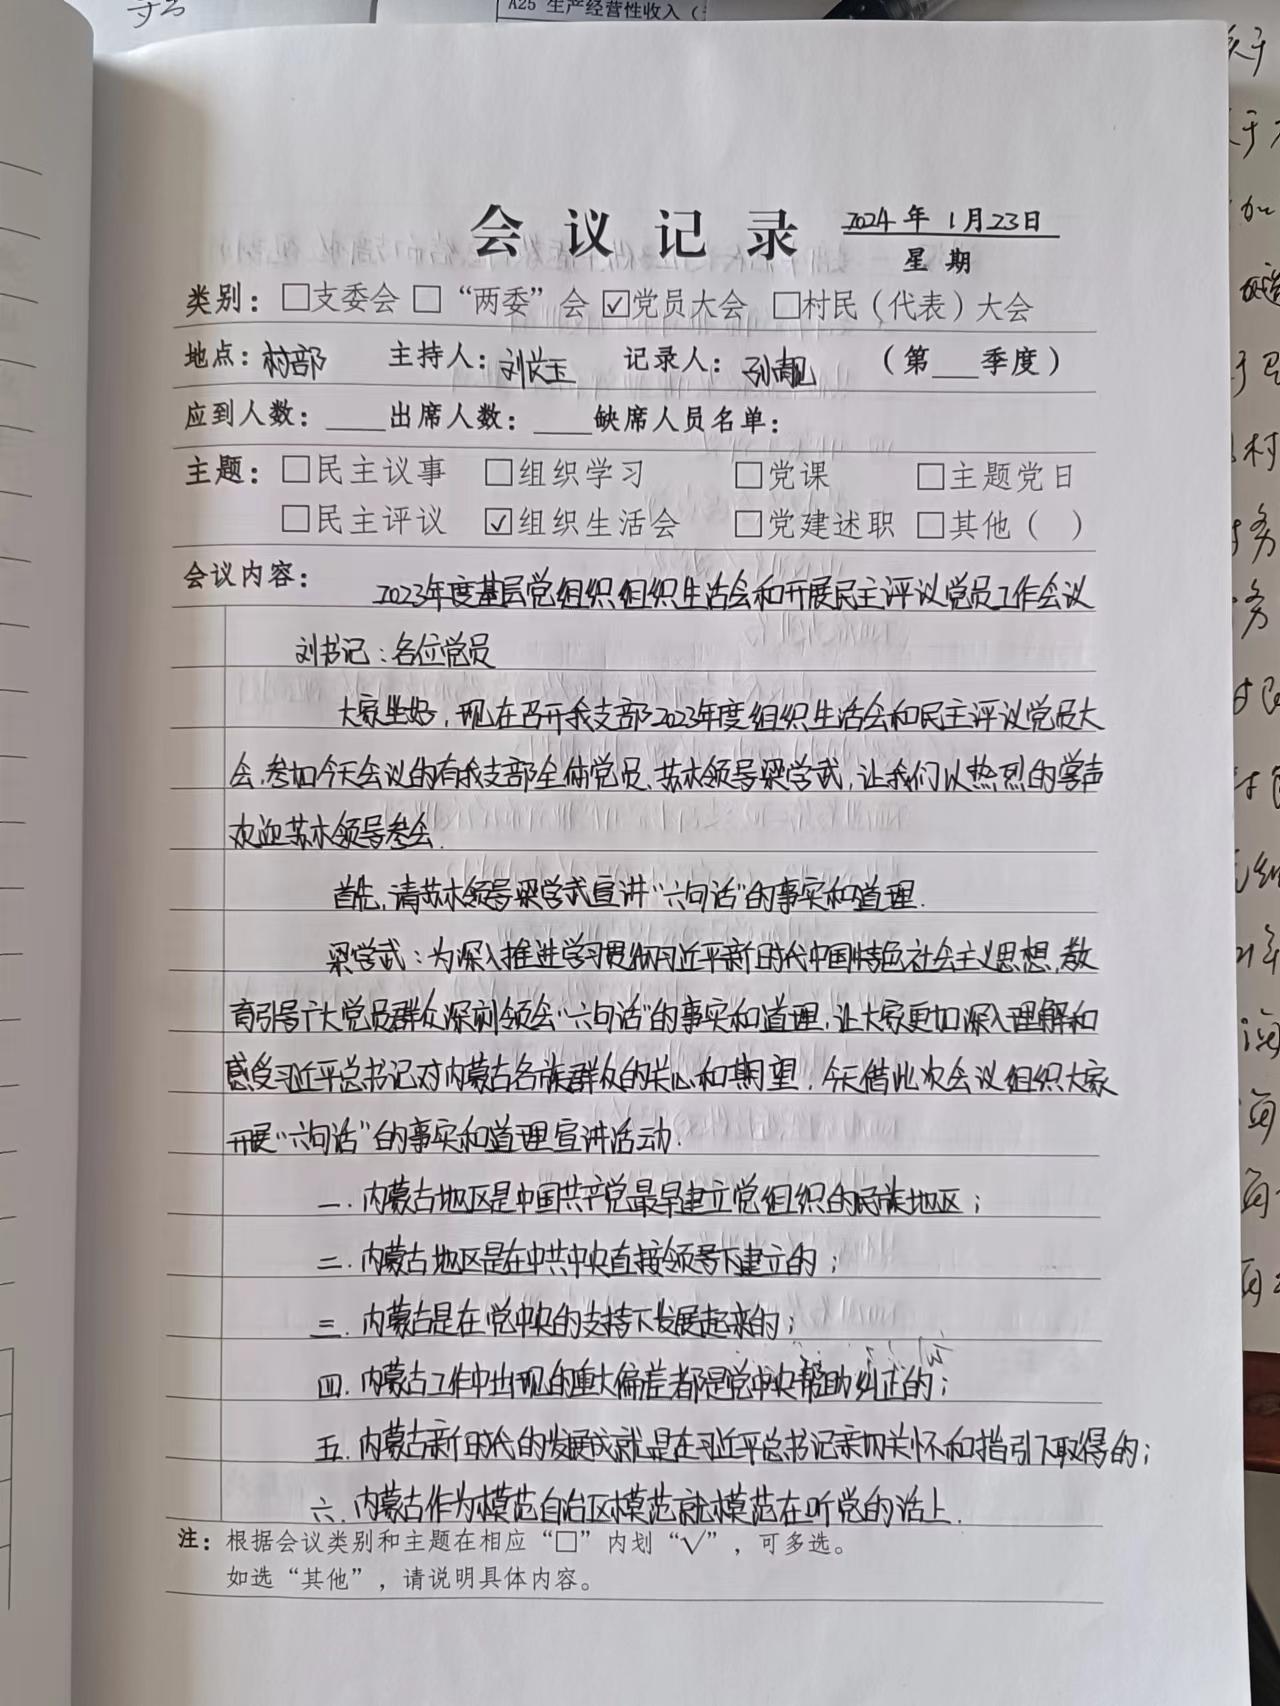 A25 生产经营性收入（
会 议 记 录 2024 年 1月23日
星 期
类别：□支委会 □“两委”会 ☑党员大会 □村民（代表）大会
地点：村部 主持人：刘长玉 记录人：孙靓 （第___季度）
应到人数：____出席人数：____缺席人员名单：
主题：□民主议事 □组织学习 □党课 □主题党日
□民主评议 ☑组织生活会 □党建述职 □其他（ ）
会议内容： 2023年度基层党组织组织生活会和开展民主评议党员工作会议
刘书记：各位党员
大家坐好，现在召开我支部2023年度组织生活会和民主评议党员大
会，参加今天会议的有我支部全体党员、苏木领导梁学武，让我们以热烈的掌声
欢迎苏木领导参会.
首先，请苏木领导梁学武宣讲“六句话”的事实和道理.
梁学武：为深入推进学习贯彻习近平新时代中国特色社会主义思想，教
育引导广大党员群众深刻领会“六句话”的事实和道理，让大家更加深入理解和
感受习近平总书记对内蒙古各族群众的关心和期望，今天借此次会议组织大家
开展“六句话”的事实和道理宣讲活动.
一.内蒙古地区是中国共产党最早建立党组织的民族地区；
二.内蒙古地区是在中共中央直接领导下建立的；
三.内蒙古是在党中央的支持下发展起来的；
四.内蒙古工作中出现的重大偏差都是党中央帮助纠正的；
五.内蒙古新时代的发展成就是在习近平总书记亲切关怀和指引下取得的；
六.内蒙古作为模范自治区模范就模范在听党的话上.
注：根据会议类别和主题在相应“□”内划“√”，可多选。
如选“其他”，请说明具体内容。